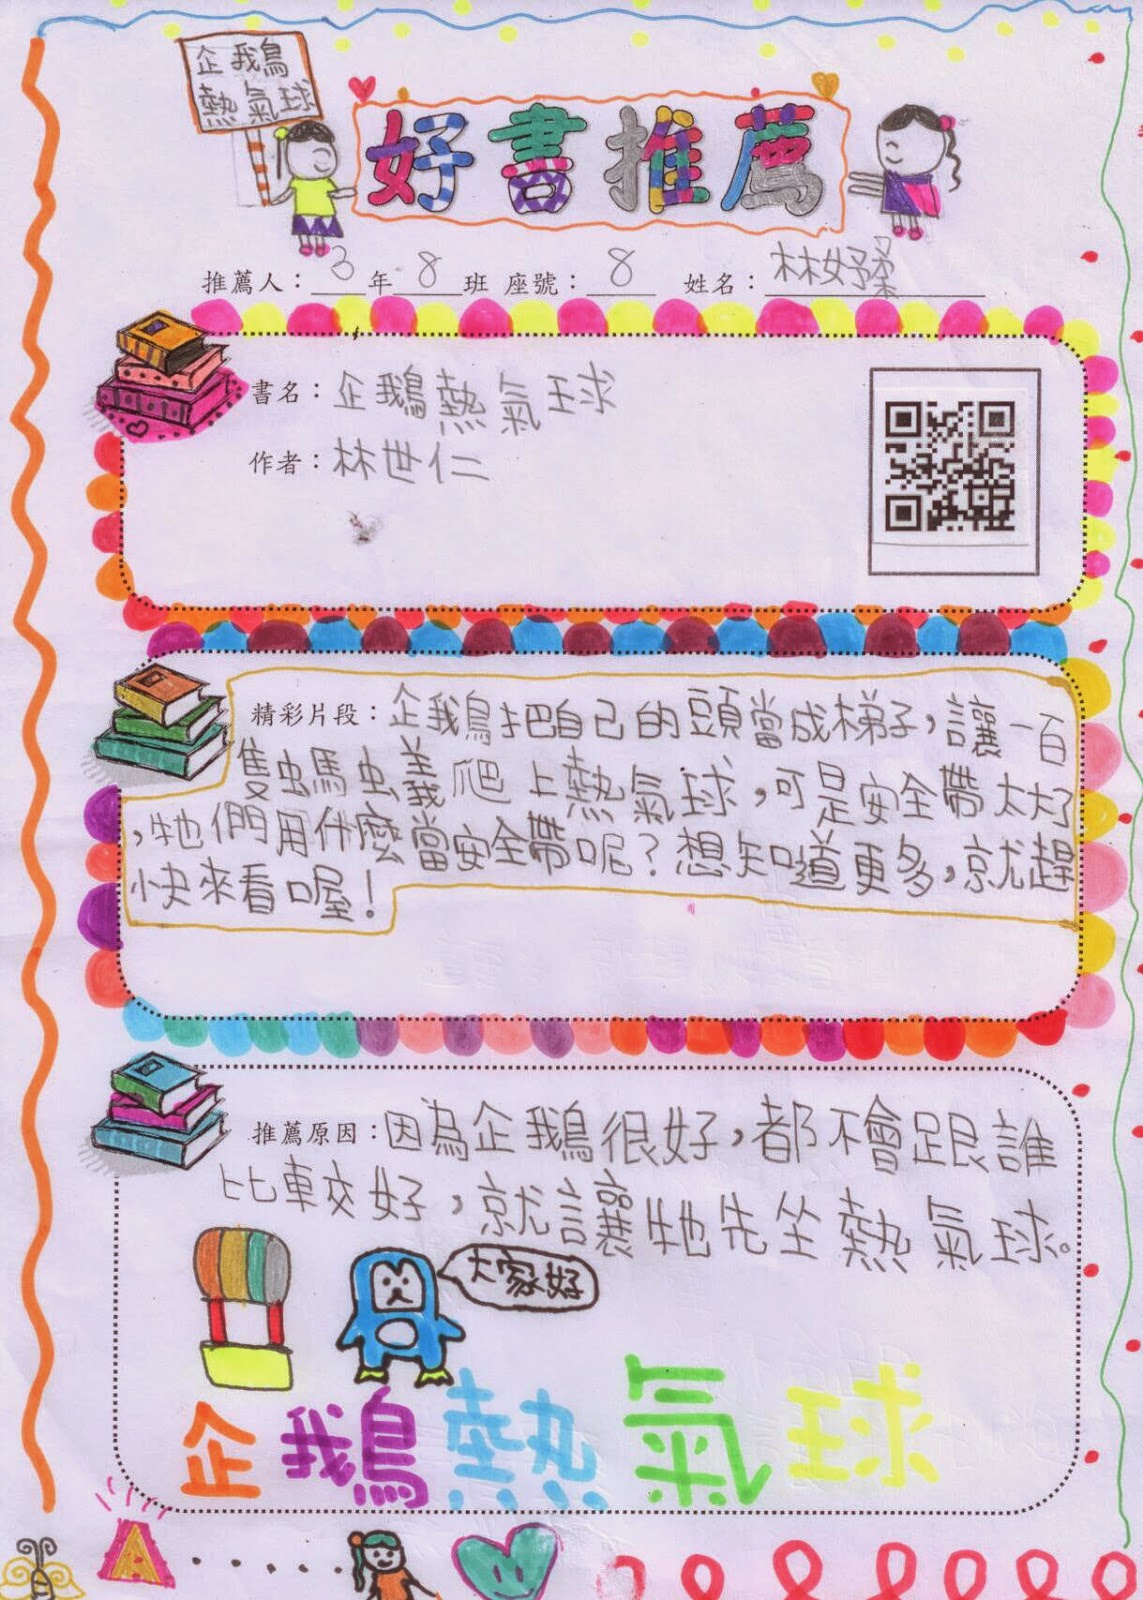 企鵝
熱氣球
好書推薦
推薦人：3年8班 座號：8 姓名：林妤柔
書名：企鵝熱氣球
作者：林世仁
精彩片段：企鵝把自己的頭當成梯子，讓一百
隻螞蟻爬上熱氣球，可是安全帶太大
，牠們用什麼當安全帶呢？想知道更多，就趕
快來看喔！
推薦原因：因為企鵝很好，都不會跟誰
比較好，就讓牠先坐熱氣球。
大家好
企鵝熱氣球